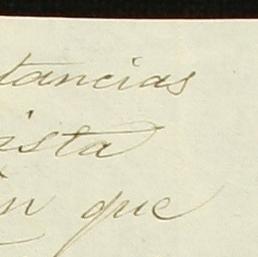 tancias
ista
n que